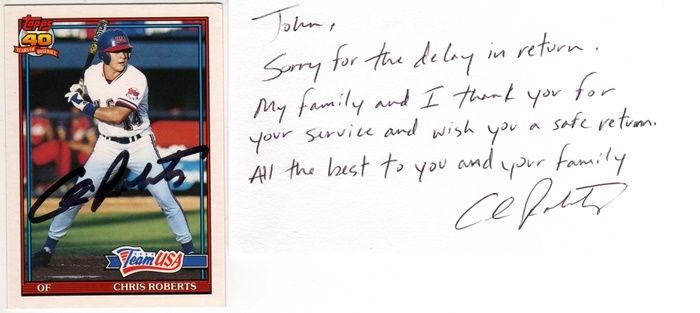 Topps
40
YEARS OF BASEBALL
USA
Chris Roberts
Team USA
OF CHRIS ROBERTS
John,
Sorry for the delay in return.
My family and I thank you for
your service and wish you a safe return.
All the best to you and your family
Chris Roberts